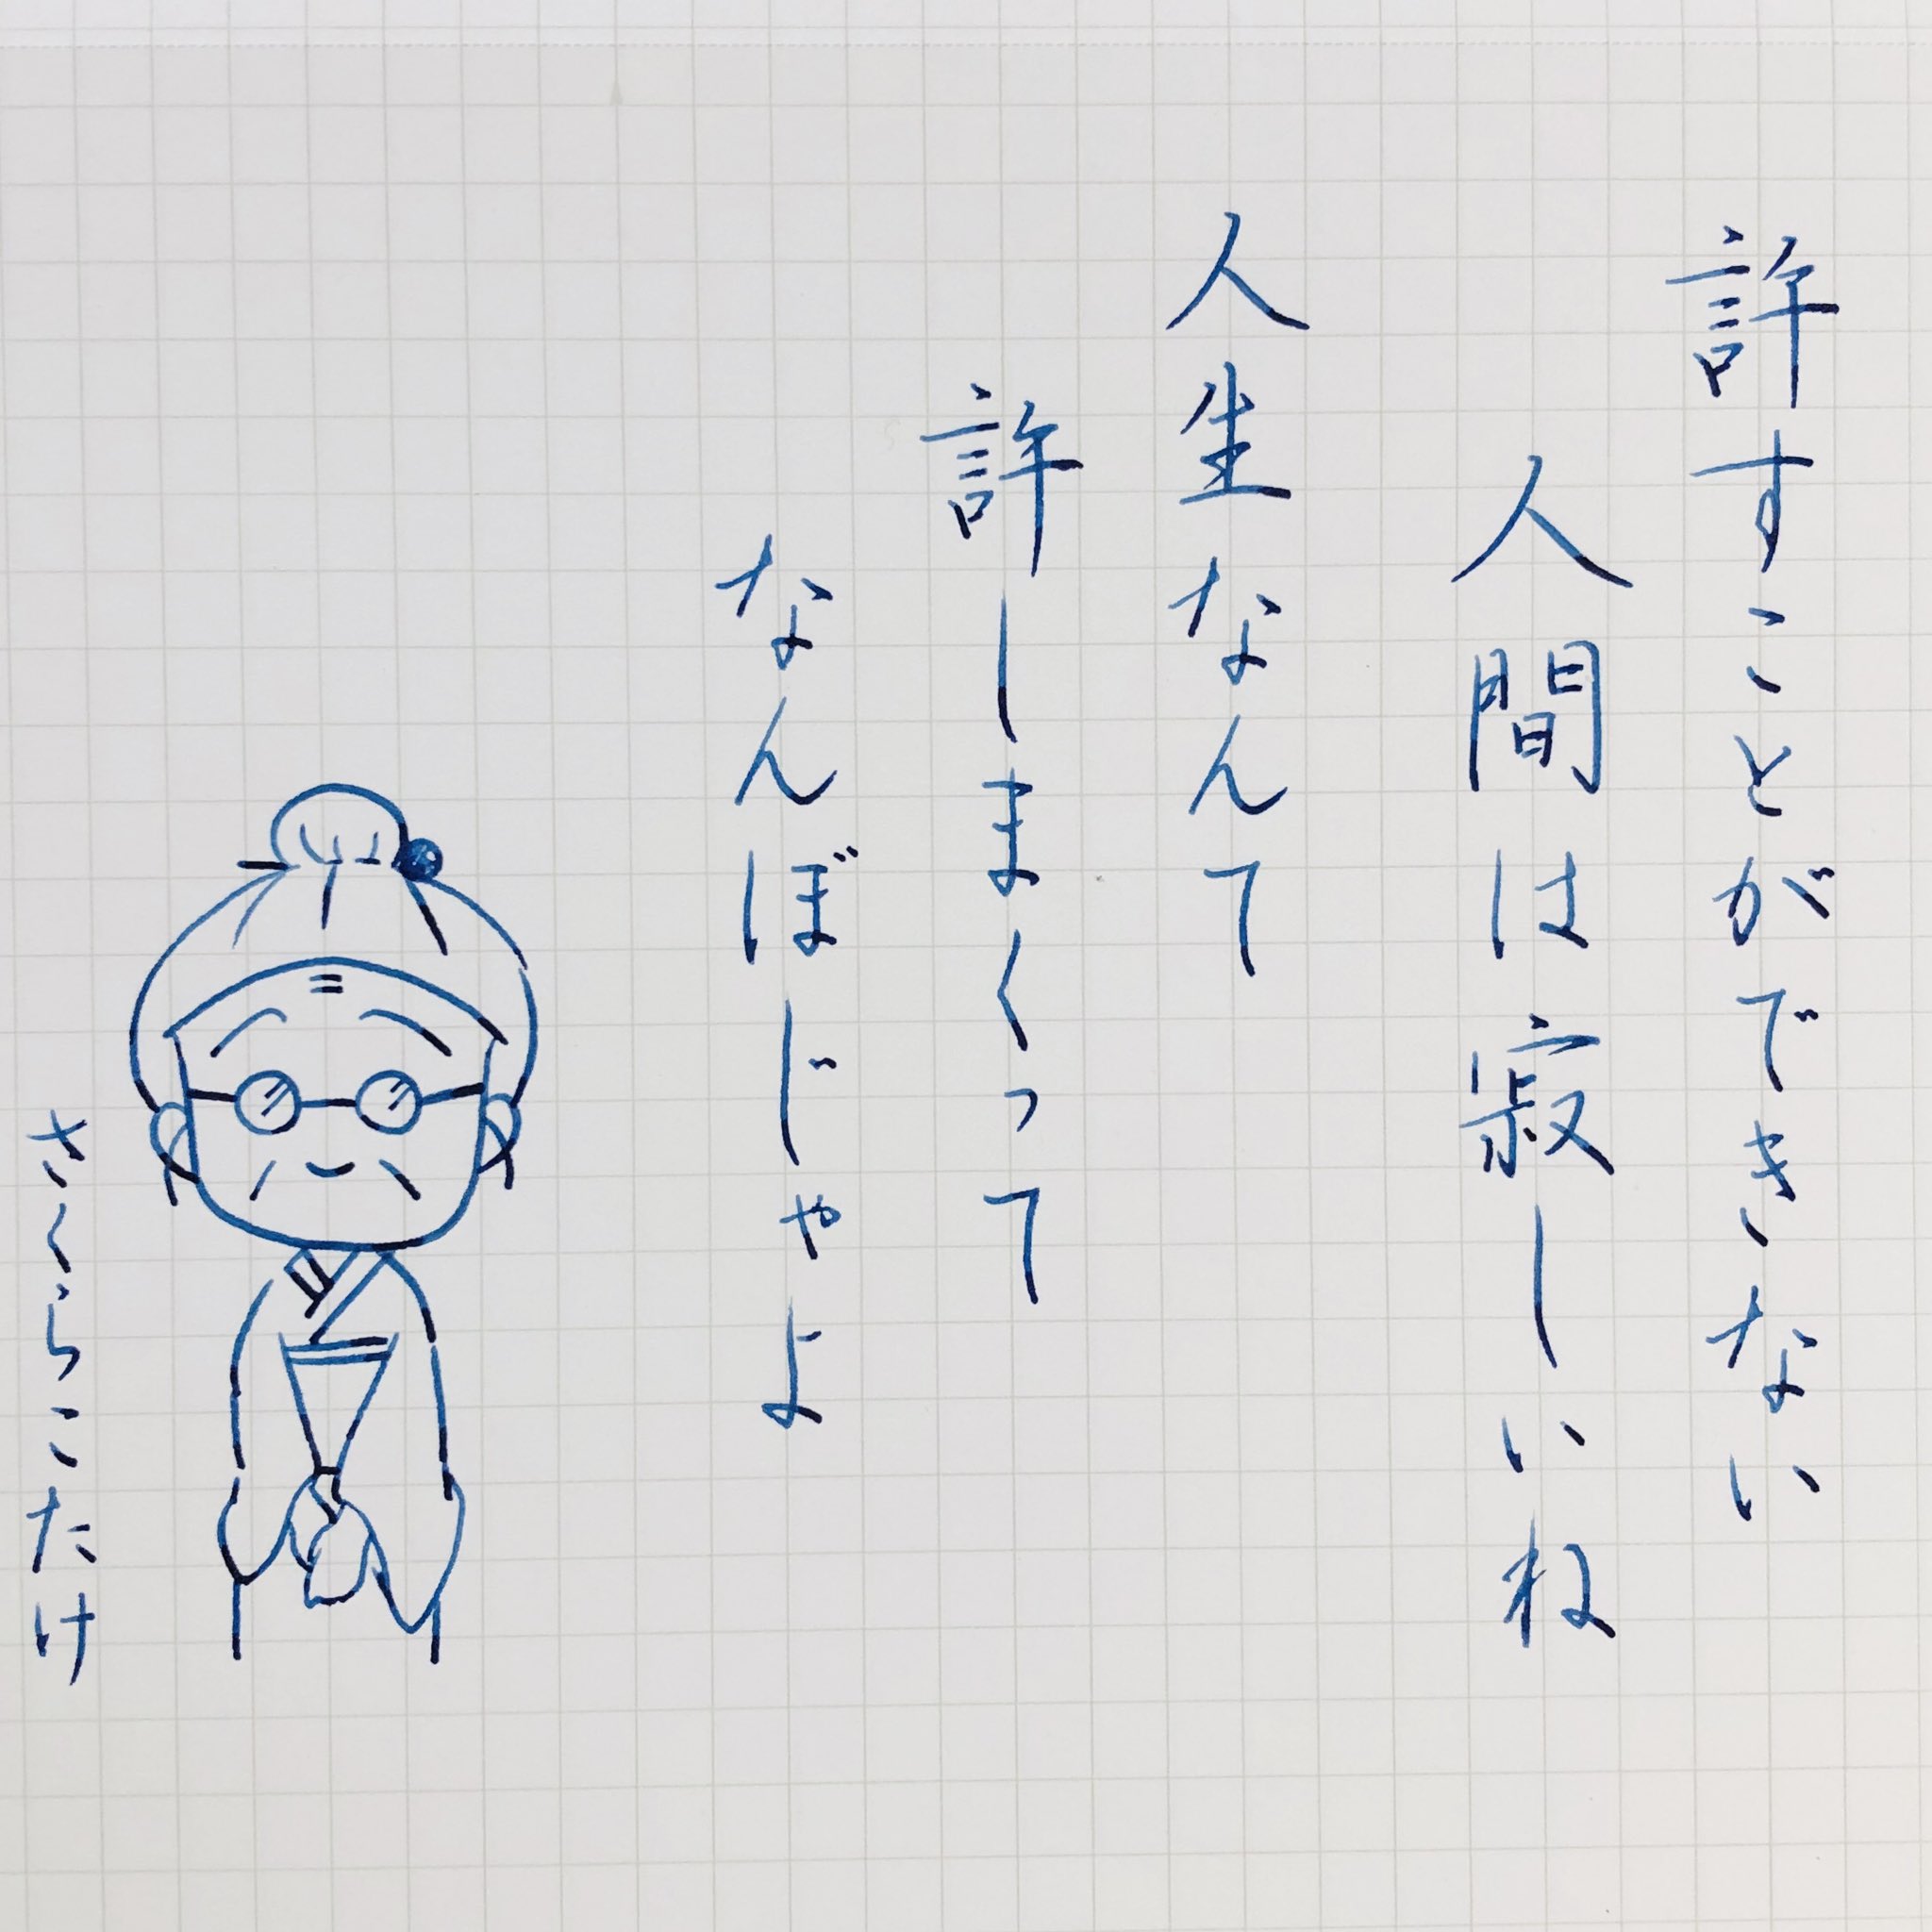 許すことができない
人間は寂しいね
人生なんて
許しまくって
なんぼじゃよ
さくらこたけ